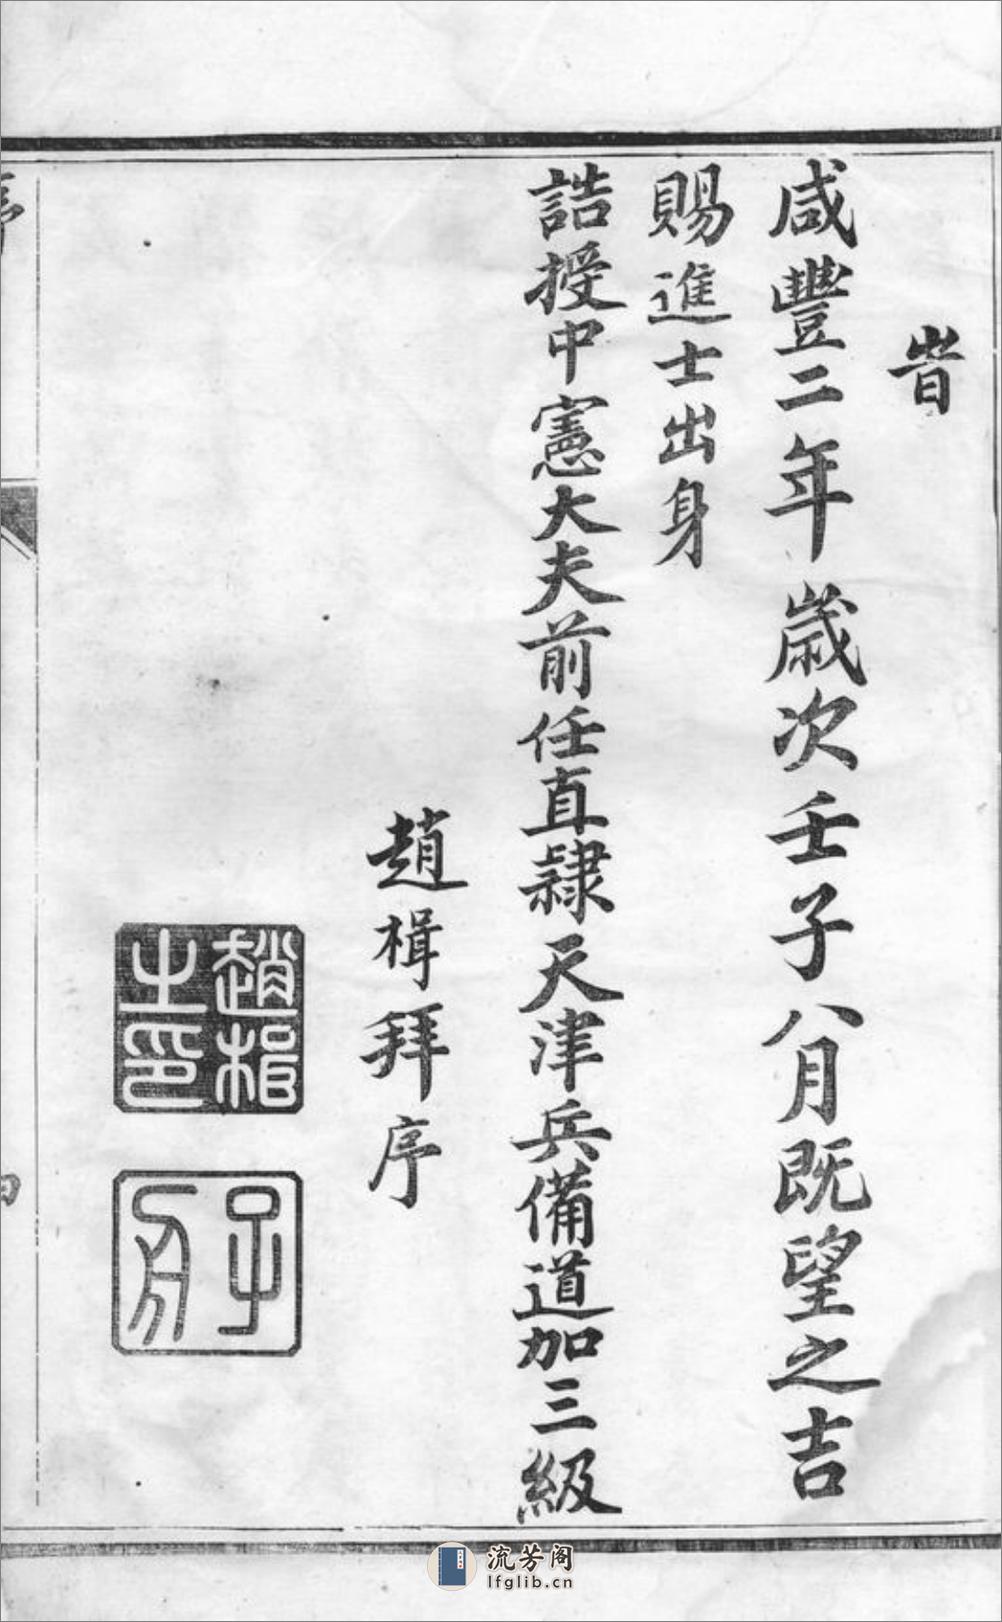 旹
咸豐二年歲次壬子八月既望之吉
賜進士出身
誥授中憲大夫前任直隸天津兵備道加三級
趙楫拜序
趙楫之印
子
序
流芳阁
lfglib.cn